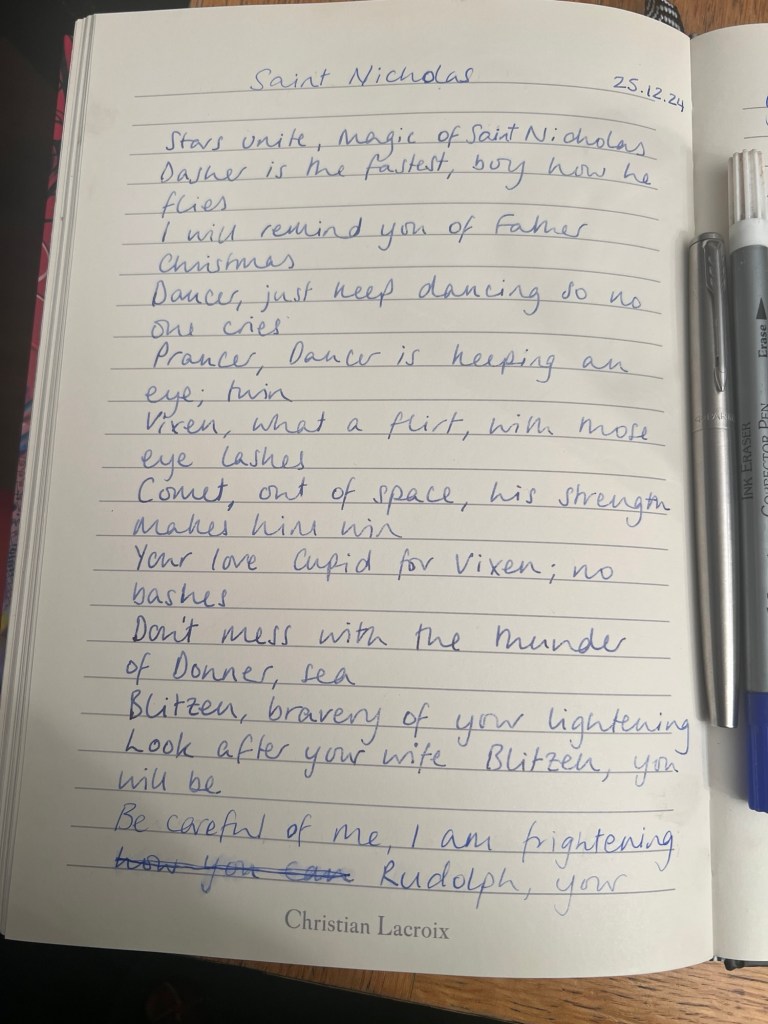 Saint Nicholas
25.12.24
Stars unite, magic of Saint Nicholas
Dasher is the fastest, boy how he
flies
I will remind you of Father
Christmas
Dancer, just keep dancing so no
one cries
Prancer, Dancer is keeping an
eye; twin
Vixen, what a flirt, with those
eye lashes
Comet, out of space, his strength
makes him win
Your love Cupid for Vixen; no
bashes
Don't mess with the thunder
of Donner, sea
Blitzen, bravery of your lightening
Look after your wife Blitzen, you
will be
Be careful of me, I am frightening
how you can Rudolph, your
Christian Lacroix
INK ERASER
CORRECTOR PEN
Erase